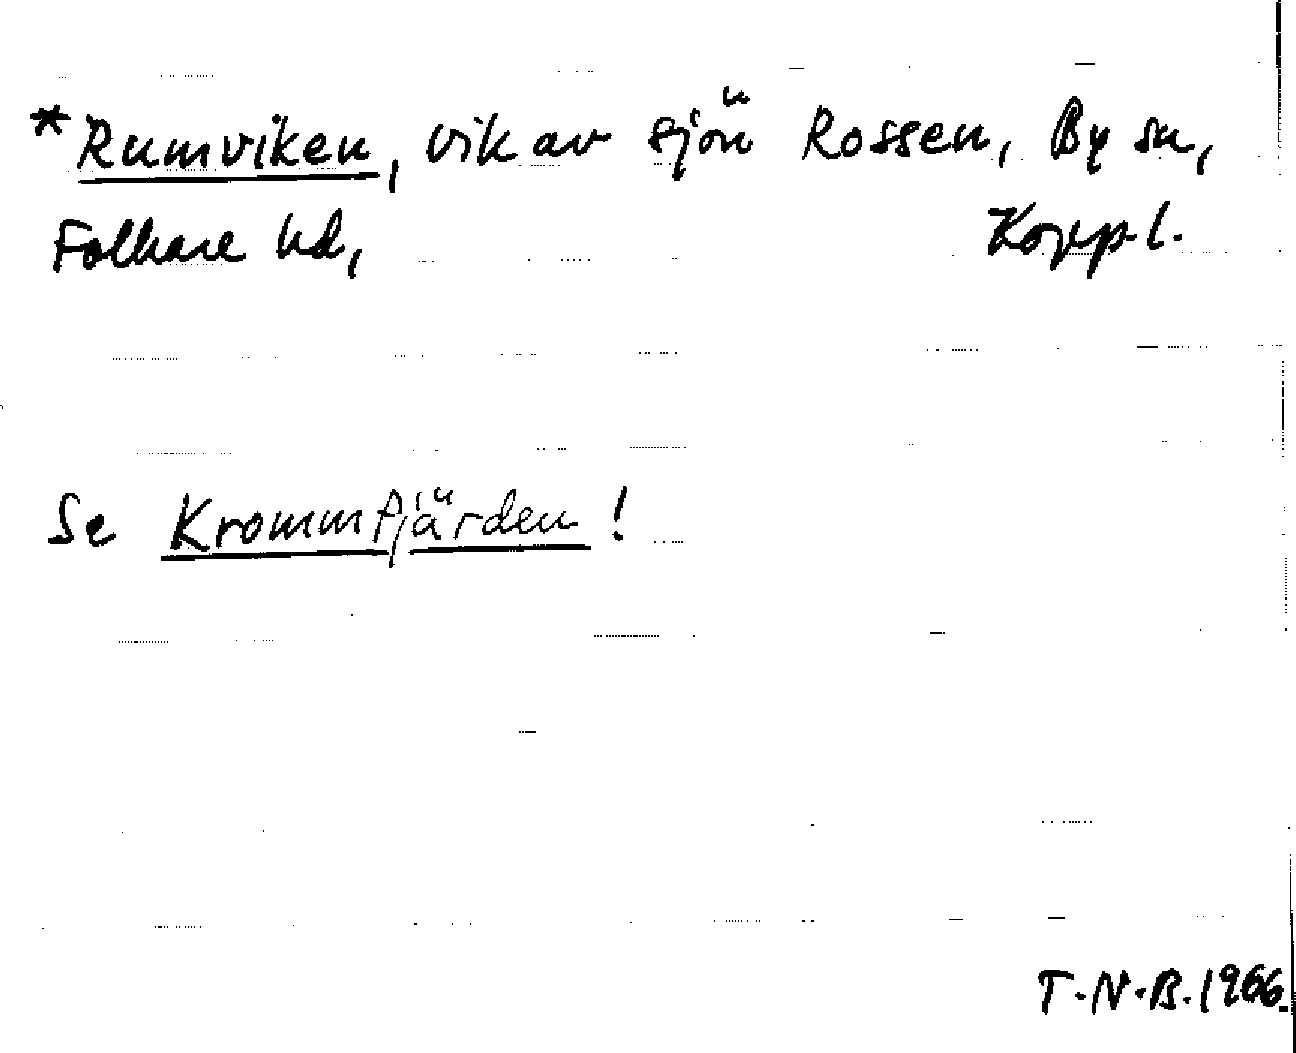 *Rumviken, vik av sjön Rossen, By sn,
Folkare hd, Koppl.
Se Krommfjärden!
T.N.B. 1966.